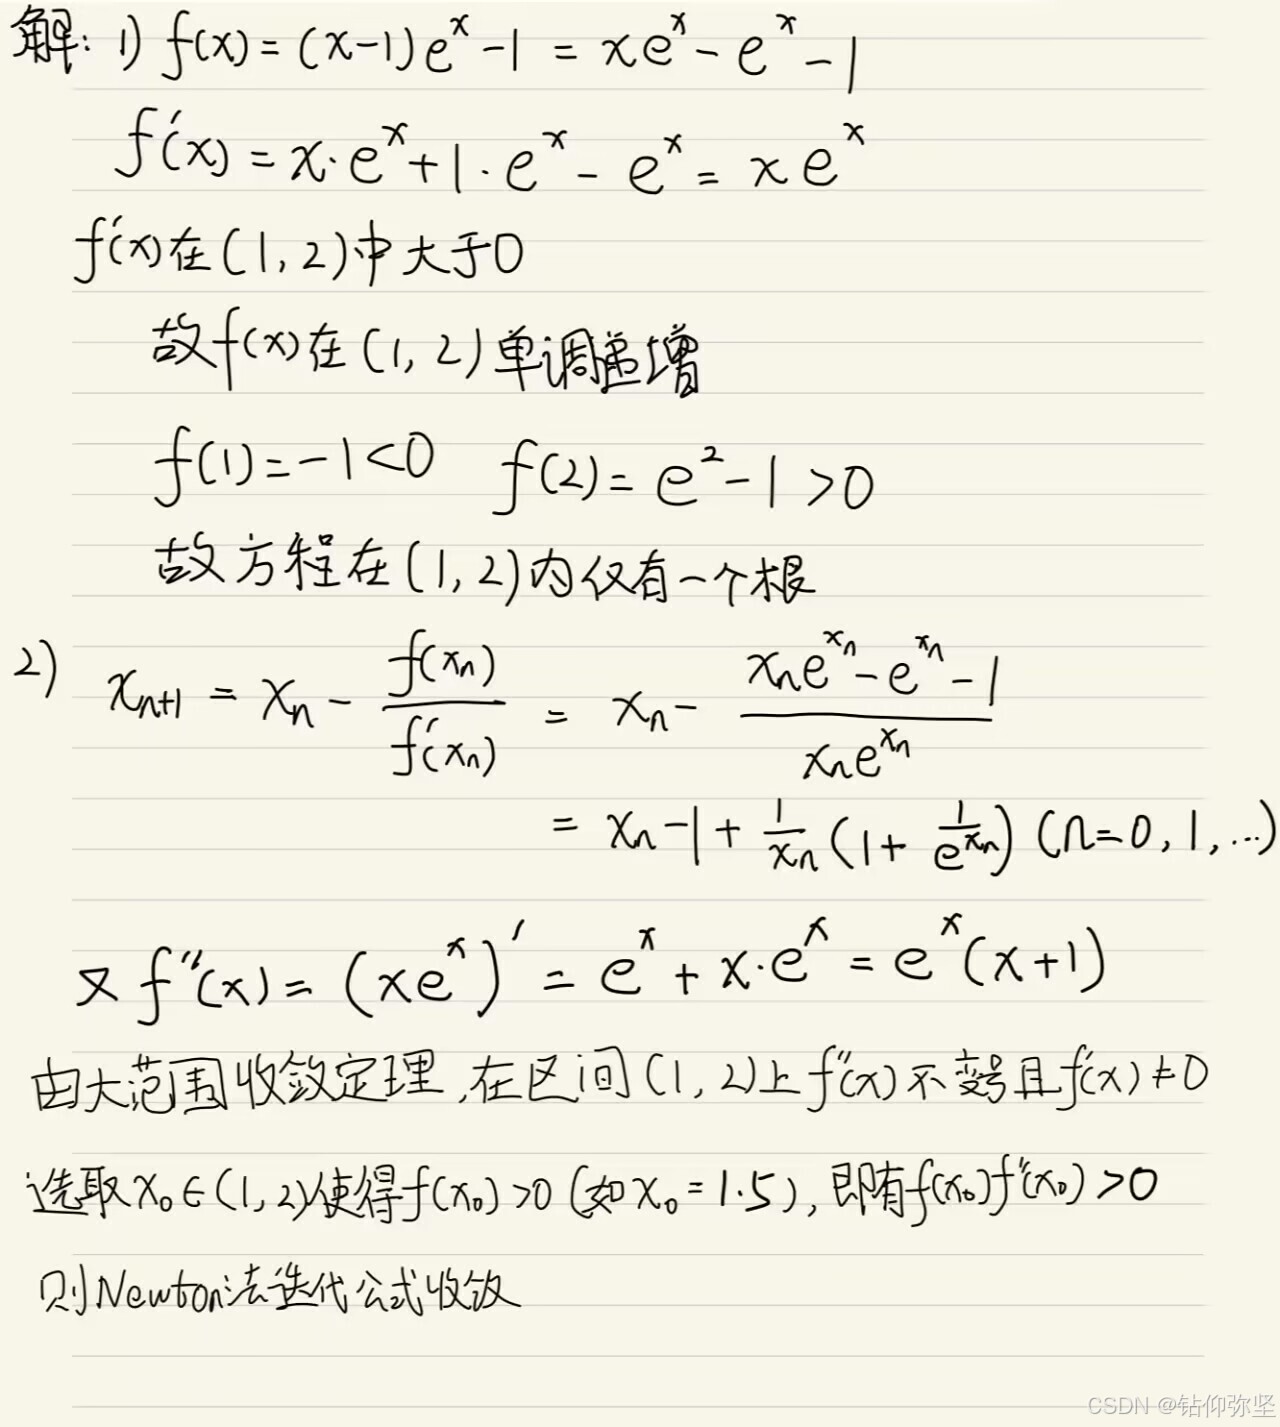 解: 1) f(x) = (x-1)e^x - 1 = xe^x - e^x - 1
f'(x) = x·e^x + 1·e^x - e^x = xe^x
f'(x)在(1,2)中大于0
故f(x)在(1,2)单调递增
f(1) = -1 < 0  f(2) = e^2 - 1 > 0
故方程在(1,2)内仅有一个根
2) x_{n+1} = x_n - \frac{f(x_n)}{f'(x_n)} = x_n - \frac{x_n e^{x_n} - e^{x_n} - 1}{x_n e^{x_n}}
= x_n - 1 + \frac{1}{x_n}(1 + \frac{1}{e^{x_n}}) (n=0,1,...)
又 f''(x) = (xe^x)' = e^x + x·e^x = e^x(x+1)
由大范围收敛定理,在区间(1,2)上f''(x)不变号且f'(x)≠0
选取x_0∈(1,2)使得f(x_0)>0(如x_0=1.5),即有f(x_0)f''(x_0)>0
则Newton法迭代公式收敛
CSDN @钻仰弥坚